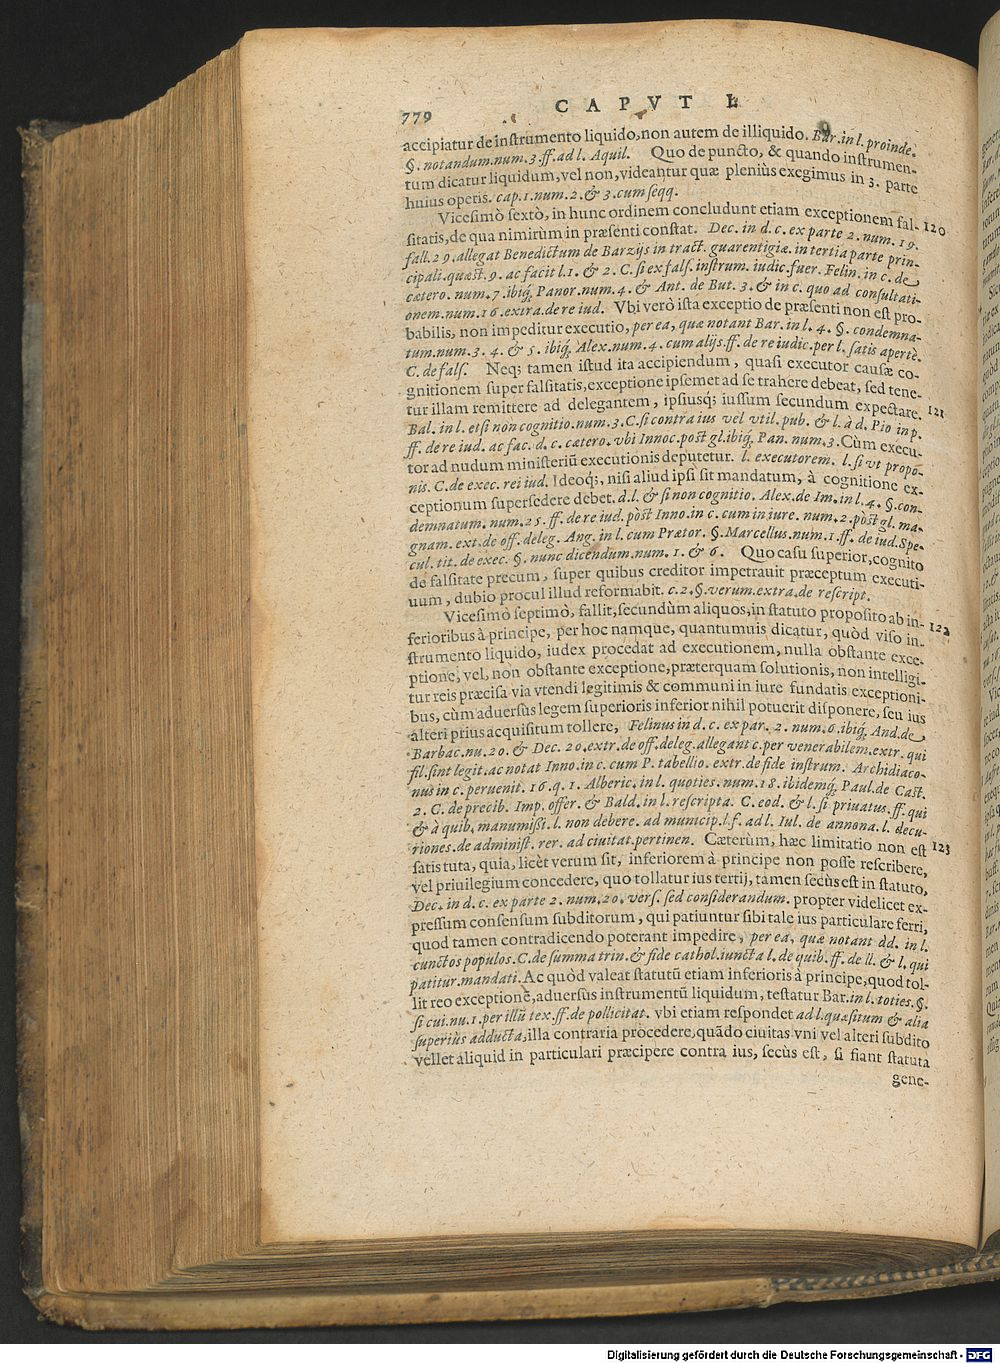 779 CAPVT I.
accipiatur de instrumento liquido, non autem de illiquido. Bar. in l. proinde.
§. notandum. num. 3. ff. ad l. Aquil. Quo de puncto, & quando instrumen-
tum dicatur liquidum, vel non, videantur quæ pleniùs exegimus in 3. parte
huius operis. cap. 1. num. 2. & 3. cum seqq.
Vicesimò sextò, in hunc ordinem concludunt etiam exceptionem fal- 120
sitatis, de qua nimirùm in præsenti constat. Dec. in d. c. ex parte 2. num. 19.
fall. 29. allegat Benedictum de Barzijs in tract. guarentigiæ. in tertia parte prin-
cipali. quæst. 9. ac facit l. 1. & 2. C. si ex fals. instrum. iudic. fuer. Felin. in c. de
cætero. num. 7. ibiq́; Panor. num. 4. & Ant. de But. 3. & in c. quo ad consultati-
onem. num. 16. extra. de re iud. Vbi verò ista exceptio de præsenti non est pro-
babilis, non impeditur executio, per ea, quæ notant Bar. in l. 4. §. condemna-
tum. num. 3. 4. & 5. ibiq́; Alex. num. 4. cum alijs. ff. de re iudic. per l. satis apertè.
C. de fals. Neq; tamen istud ita accipiendum, quasi executor causæ co-
gnitionem super falsitatis, exceptione ipsemet ad se trahere debeat, sed tene-
tur illam remittere ad delegantem, ipsiusq; iussum secundum expectare. 121
Bal. in l. etsi non cognitio. num. 3. C. si contra ius vel vtil. pub. & l. à d. Pio in p.
ff. de re iud. ac fac. d. c. cætero. vbi Innoc. post gl. ibiq́; Pan. num. 3. Cùm execu-
tor ad nudum ministeriū executionis deputetur. l. executorem. l. si vt propo-
nis. C. de exec. rei iud. Ideoq́;, nisi aliud ipsi sit mandatum, à cognitione ex-
ceptionum supersedere debet. d. l. & si non cognitio. Alex. de Im. in l. 4. §. con-
demnatum. num. 25. ff. de re iud. pòst Inno. in c. cum in iure. num. 2. pòst gl. ma-
gnam. ext. de off. deleg. Ang. in l. cum Prætor. §. Marcellus. num. 1. ff. de iud. Spe-
cul. tit. de exec. §. nunc dicendum. num. 1. & 6. Quo casu superior, cognito
de falsitate precum, super quibus creditor impetrauit præceptum executi-
uum, dubio procul illud reformabit. c. 2. §. verum. extra. de rescript.
Vicesimò septimò, fallit, secundùm aliquos, in statuto proposito ab in- 122
ferioribus à principe, per hoc namque, quantumuis dicatur, quòd viso in-
strumento liquido, iudex procedat ad executionem, nulla obstante exce-
ptione, vel, non obstante exceptione, præterquam solutionis, non intelligi-
tur reis præcisa via vtendi legitimis & communi in iure fundatis exceptioni-
bus, cùm aduersus legem superioris inferior nihil potuerit disponere, seu ius
alteri prius acquisitum tollere, Felinus in d. c. ex par. 2. num. 6. ibiq́; And. de
Barbac. nu. 20. & Dec. 20. extr. de off. deleg. allegant c. per venerabilem. extr. qui
fil. sint legit. ac notat Inno. in c. cum P. tabellio. extr. de fide instrum. Archidiaco-
nus in c. peruenit. 16. q. 1. Alberic. in l. quoties. num. 18. ibidemq́; Paul. de Cast.
2. C. de precib. Imp. offer. & Bald. in l. rescripta. C. eod. & l. si priuatus. ff. qui
& à quib. manumissi. l. non debere. ad municip. l. f. ad l. Iul. de annona. l. decu-
riones. de administ. rer. ad ciuitat. pertinen. Cæterùm, hæc limitatio non est 123
satis tuta, quia, licèt verum sit, inferiorem à principe non posse rescribere,
vel priuilegium concedere, quo tollatur ius tertij, tamen secùs est in statuto,
Dec. in d. c. ex parte 2. num. 20. vers. sed considerandum. propter videlicet ex-
pressum consensum subditorum, qui patiuntur sibi tale ius particulare ferri,
quod tamen contradicendo poterant impedire, per ea, quæ notant dd. in l.
cunctos populos. C. de summa trin. & fide cathol. iuncta l. de quib. ff. de ll. & l. qui
patitur. mandati. Ac quòd valeat statutū etiam inferioris à principe, quod tol-
lit reo exceptionē, aduersus instrumentū liquidum, testatur Bar. in l. toties. §.
si cui. nu. 1. per illū tex. ff. de pollicitat. vbi etiam respondet ad l. quæsitum & alia
superiùs adducta, illa contraria procedere, quādo ciuitas vni vel alteri subdito
vellet aliquid in particulari præcipere contra ius, secùs est, si fiant statuta
gene-
Digitalisierung gefördert durch die Deutsche Forschungsgemeinschaft - DFG